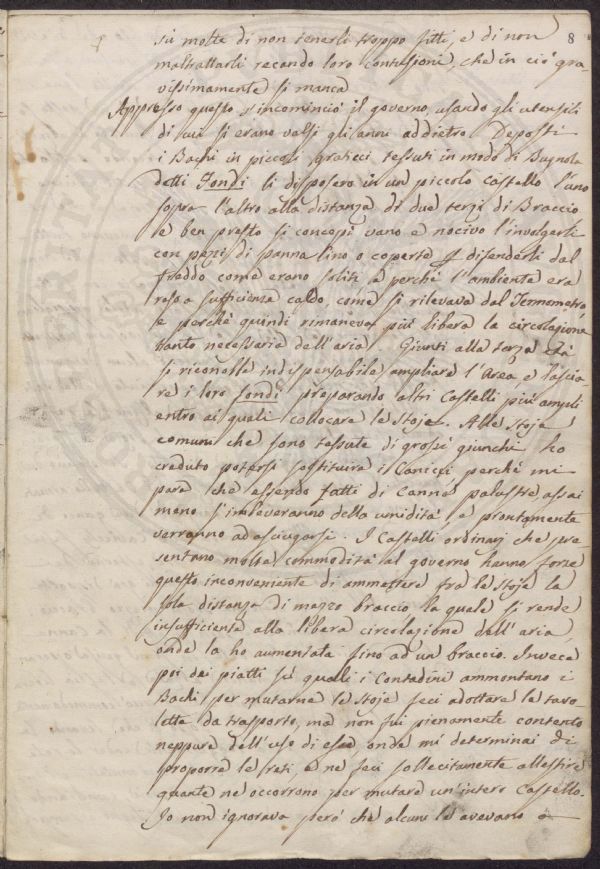 8
sù molte di non tenerli troppo fitti, e di non
maltrattarli recando loro contusioni, che in ciò gra-
vissimamente si manca
Appresso questo s'incominciò il governo, usando gli utensili
di cui si erano valsi gli anni addietro. Deposti
i Bachi in piccoli graticci tessuti in modo di Bugnola
detti Fondi li disposero in un piccolo Castello l'uno
sopra l'altro alla distanza di due terzi di Braccio
e ben presto si concepì vano e nocivo l'involgerli
con pezzi di panna lino o coperte p difenderli dal
freddo come erano soliti e perchè l'ambiente era
reso a sufficienza caldo, come si rilevava dal Termometro
e perchè quindi rimaneva più libera la circolazione
tanto necessaria dell'aria. Giunti alla terza età
si riconobbe indispensabile ampliare l'Area e lascia-
re i loro fondi preparando altri Castelli più ampli
entro ai quali collocare le Stoje. Alle Stoje
comuni che sono tessute di grossi giunchi ho
creduto potersi sostituire i Canicci perchè mi
pare che essendo fatti di Canne palustre assai
meno s'imbeveranno della umidità, e prontamente
verranno ad asciugarsi. I Castelli ordinarj che pre-
sentano molte commodità al governo hanno forse
questo inconveniente di ammettere fra le Stoje la
sola distanza di mezzo braccio la quale si rende
insufficiente alla libera circolazione dell'aria,
onde la ho aumentata fino ad un braccio. Invece
poi dei piatti sù quali i Contadini ammontano i
Bachi per mutarne le Stoje feci adottare le tavo-
lette da trasporto, ma non fui pienamente contento
neppure dell'uso di esse, onde mi determinai di
proporre le reti, e ne feci sollecitamente allestire
quante ne occorrono per mutare un'intero Castello.
Io non ignorava però che alcuni le avevano a-